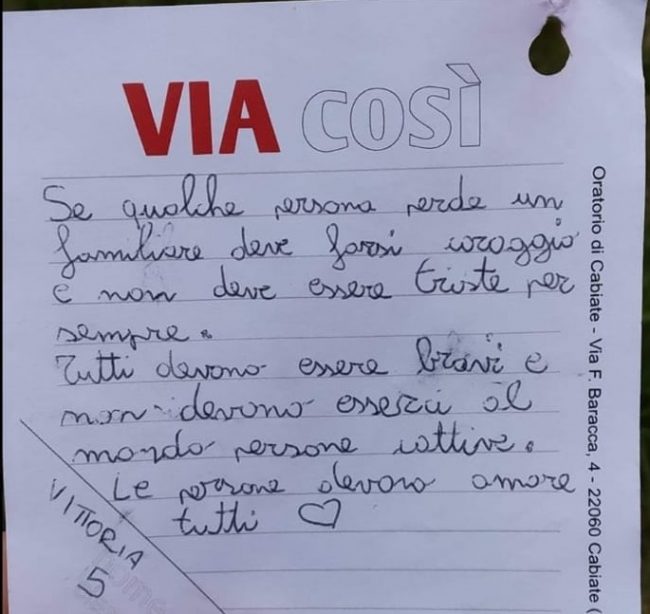 VIA COSÌ
Se qualche persona perde un
familiare deve farsi coraggio
e non deve essere triste per
sempre.
Tutti devono essere bravi e
non devono esserci al
mondo persone cattive.
Le persone devono amore
tutti ♡
VITTORIA
5
Oratorio di Cabiate - Via F. Baracca, 4 - 22060 Cabiate (